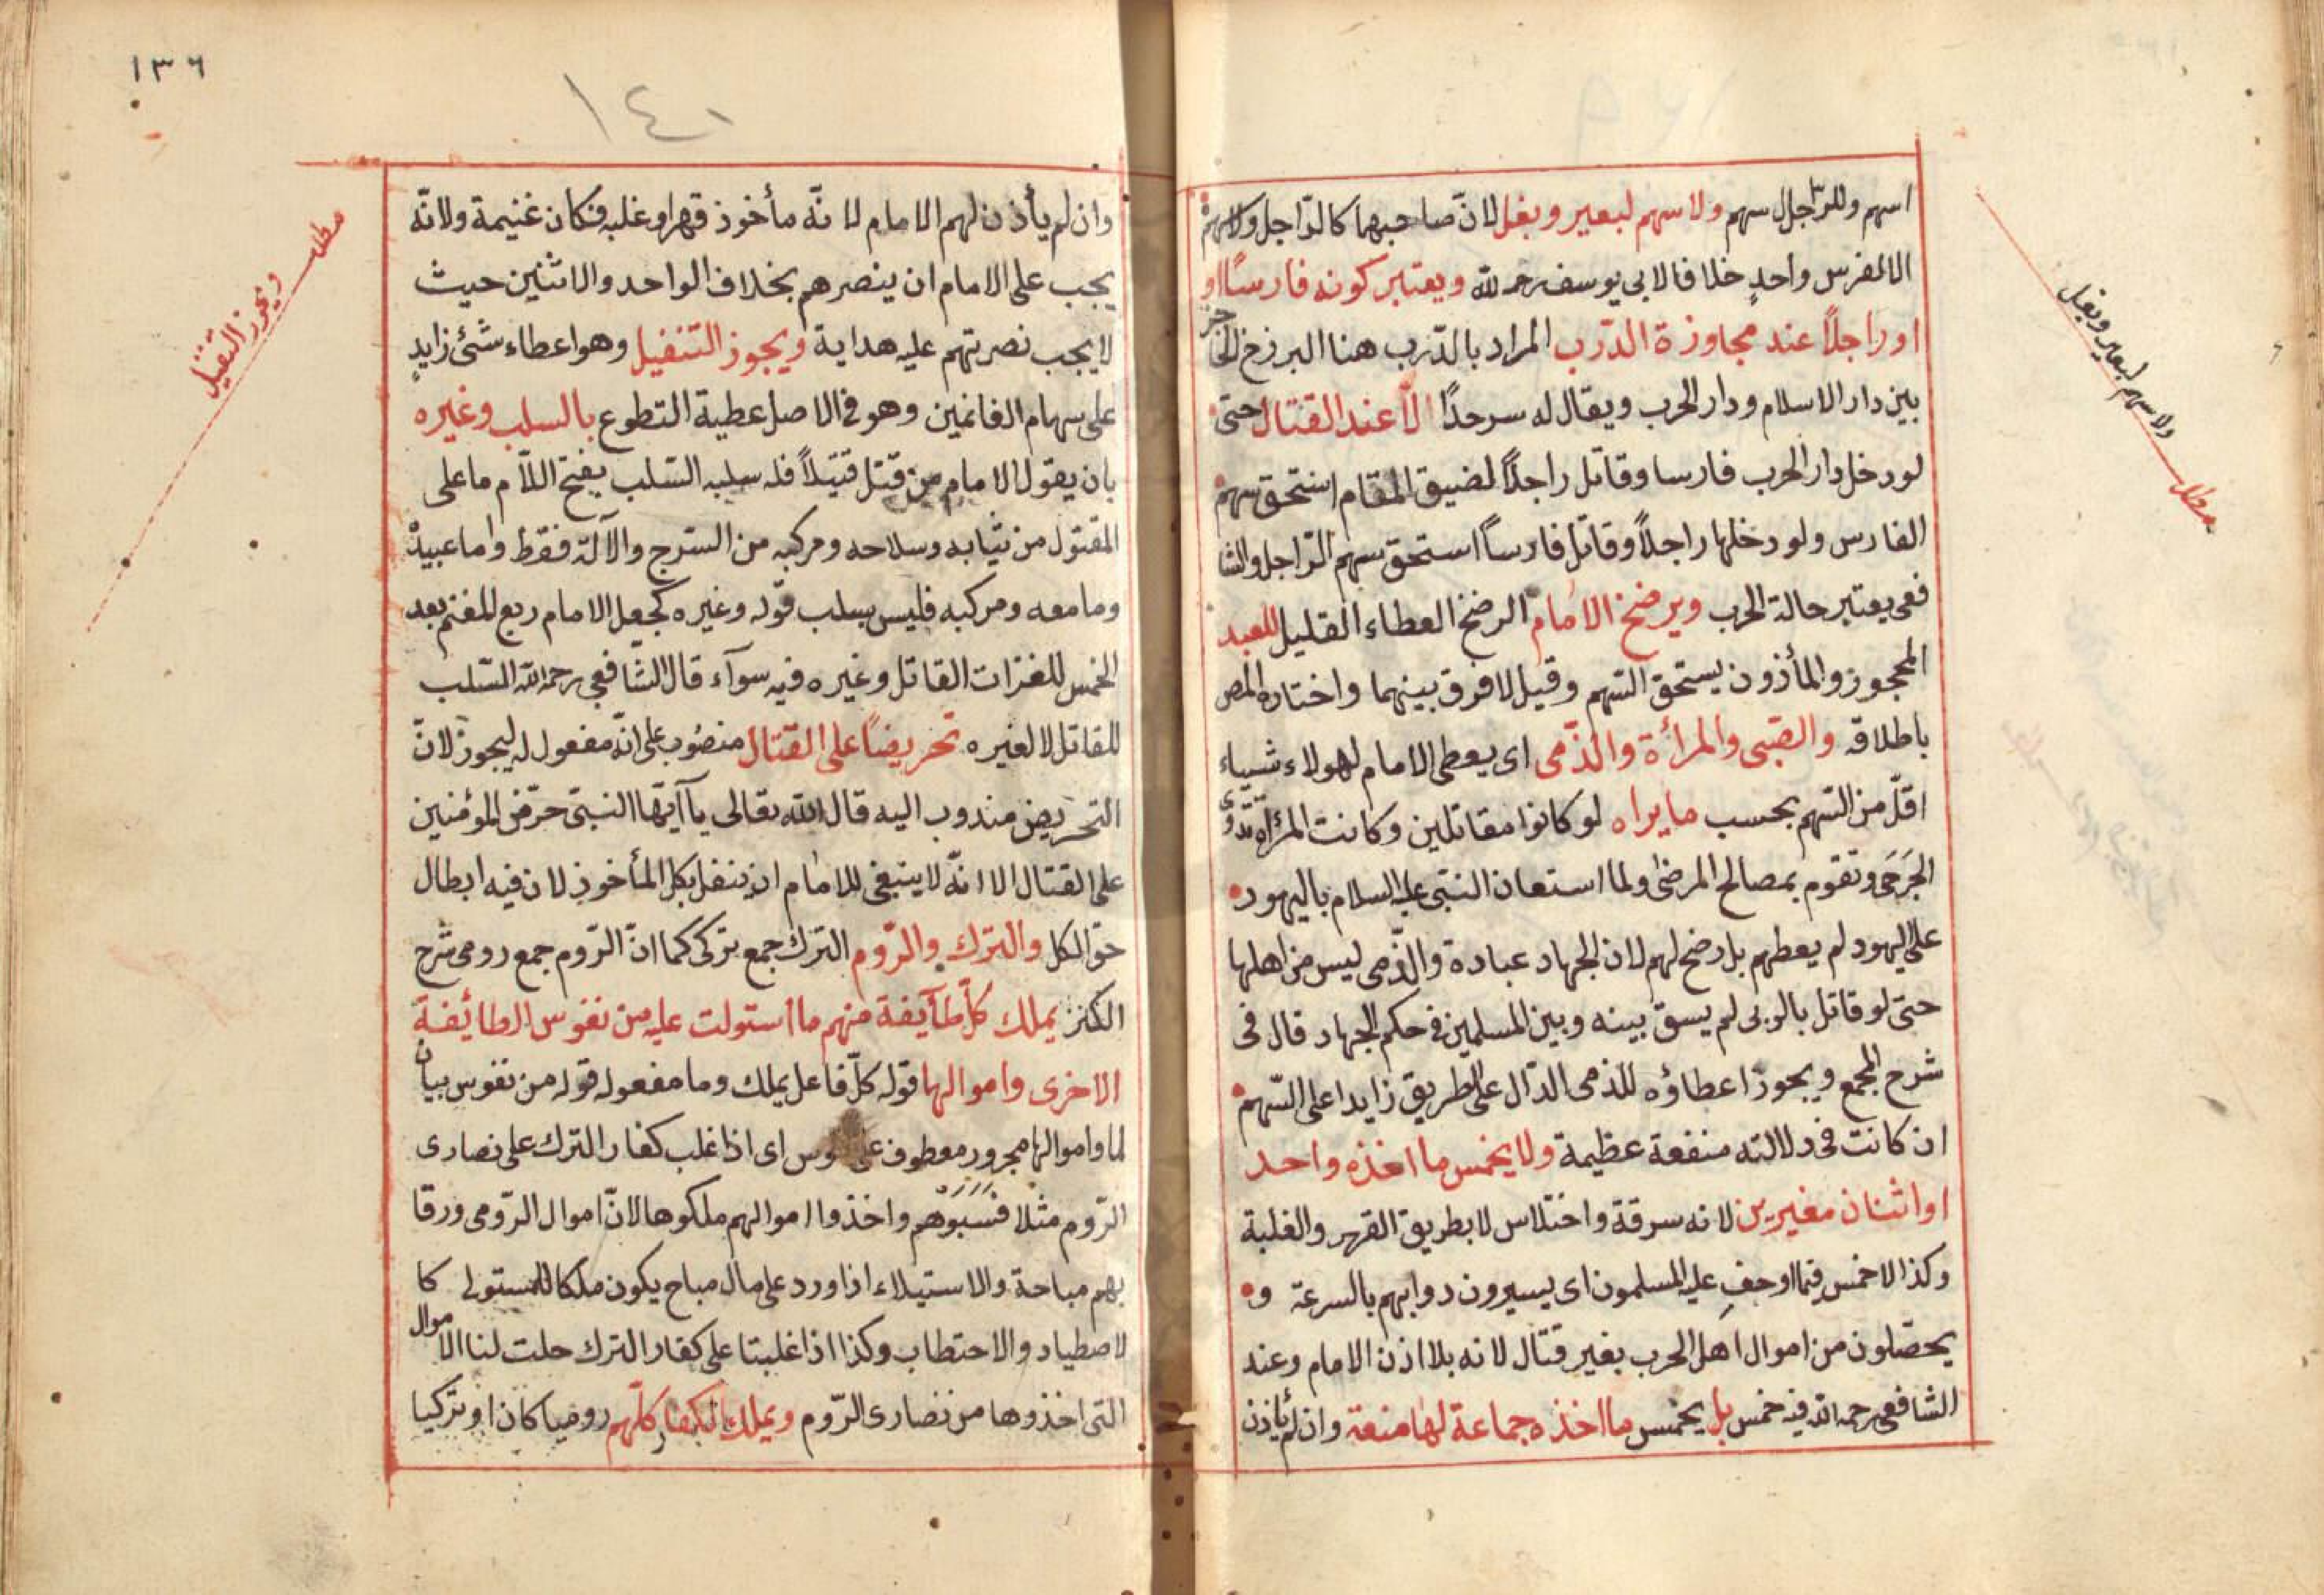 اسهم وللراجل سهم ولا سهم لبعير وبغل لانّ صاحبهما كالرّاجل ولا سهم
الا لفرس واحدٍ خلافا لابي يوسف رحمه الله ويعتبر كونه فارسًا او
او راجلاً عند مجاوزة الدّرب المراد بالدّرب هنا البرزخ الحاجز
بين دار الاسلام ودار الحرب ويقال له سرحدّا لا عند القتال حتى
لو دخل دار الحرب فارسا وقاتل راجلاً لضيق المقام استحق سهم
الفارس ولو دخلها راجلاً وقاتل فارساً استحق سهم الرّاجل والشا
فعي يعتبر حالة الحرب ويرضخ الامام الرضخ العطاء القليل للعبد
المحجوز والمأذون يستحق السّهم وقيل لا فرق بينهما واختاره المص
باطلاقه والصّبى والمرأة والذّمى اى يعطى الامام لهولاء شيياء
اقلّ من السّهم بحسب ما يراه لو كانوا مقاتلين وكانت المرأة تداوى
الجَرحَى وتقوم بمصالح المرضى ولما استعان النبّى عليه السلام باليهود
على اليهود لم يعطهم بل رضخ لهم لان الجهاد عبادة والذّمى ليس من اهلها
حتى لو قاتل بالوبى لم يسق بينه وبين المسلمين في حكم الجهاد قال فى
شرح المجمع ويجوز اعطاؤه للذمى الدّال على الطريق زايدا على السّهم
ان كانت فى دلالته منفعة عظيمة ولا يخمس ما اخذه واحد
او اثنان مغيرين لانه سرقة واختلاس لا بطريق القهر والغلبة
وكذا لا خمس فيما اوجف عليه المسلمون اى يسيرون دوابهم بالسرعة و
يحصّلون من اموال اهل الحرب بغير قتال لانه بلا اذن الامام وعند
الشافعى رحمه الله فيه خمس بل يخمس ما اخذه جماعة لها منعة وان لم يأذن
ولا سهم لبعير وبغل
مطلب
١٣٦
١٤١
وان لم يأذن لهم الامام لانّه مأخوذ قهرا وغلبه فكان غنيمة ولانّه
يجب على الامام ان ينصرهم بخلاف الواحد والاثنين حيث
لا يجب نصرتهم عليه هداية ويجوز التنفيل وهو اعطاء شئ زايدٍ
على سهام الغانمين وهو في الاصل عطية التطوع بالسلب وغيره
بان يقول الامام من قتل قتيلاً فله سلبه السّلب بفتح اللاّم ما على
المقتول من ثيابه وسلاحه ومركبه من السّرج والآلة فقط واما عبيده
وما معه ومركبه فليس بسلب قوله وغيره كجعل الامام ربع المغنم بعد
الخمس للغزات القاتل وغيره فيه سوآء قال الشافعى رحمه الله السّلب
للقاتل لا لغيره تحريضاً على القتال منصُوب على انّه مفعول له ليجوز لانّ
التحريض مندوب اليه قال الله تعالى يا آيّها النبّى حرّض المؤمنين
على القتال الا انّه لا ينبغى للامام ان ينفل بكل المأخوذ لان فيه ابطال
حق الكل والترك والرّوم الترك جمع تركى كما انّ الرّوم جمع رومى شرح
الكنز يملك كلّ طآيفة منهم ما استولت عليه من نفوس الطائفة
الاخرى واموالها قوله كلّ فاعل يملك وما مفعوله قوله من نفوس بيان
لما واموالها مجرور معطوف على اى اذا غلب كفار الترك على نصارى
الرّوم مثلا فسَبَوْهم واخذوا اموالهم ملكوها لانّ اموال الرّومى ورقا
بهم مباحة والاستيلاء اذا ورد على مال مباح يكون ملكا للمستولى كا
لاصطياد والاحتطاب وكذا اذا غلبنا على كفار الترك حلت لنا الاموال
التى اخذوها من نصارى الرّوم ويملك الكفار كلّهم روميا كان او تركيا
مطلب
ويجوز التنفيل